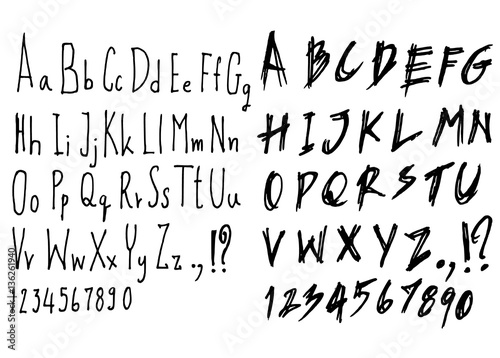 Aa Bb Cc Dd Ee Ff Gg
Hh Ii Jj Kk Ll Mm Nn
Oo Pp Qq Rr Ss Tt Uu
Vv Ww Xx Yy Zz . , ! ?
1234567890
A B C D E F G
H I J K L M N
O P Q R S T U
V W X Y Z . , ! ?
1234567890
Adobe Stock | #136261940